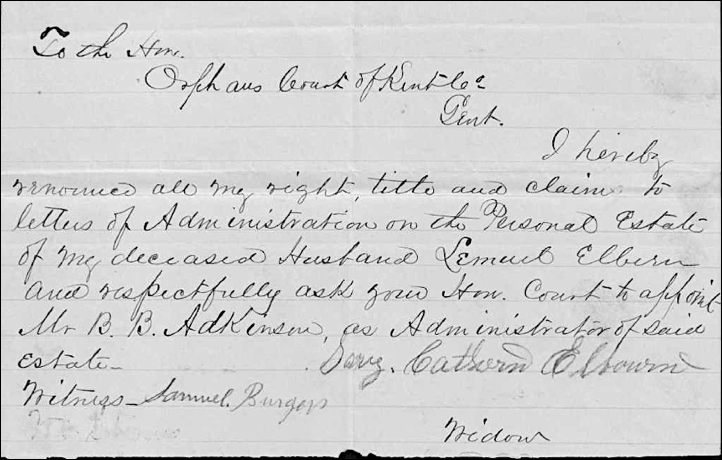 To the Hon.
Orphans Court of Kent Co
Gent.
I hereby
renounce all my right, title and claim to
letters of Administration on the Personal Estate
of my deceased Husband Lemuel Elbern
and respectfully ask your Hon. Court to appoint
Mr B. B. Adkinson, as Administrator of said
estate— Cathern Elbourn
Witness— Samuel Burgess
Widow